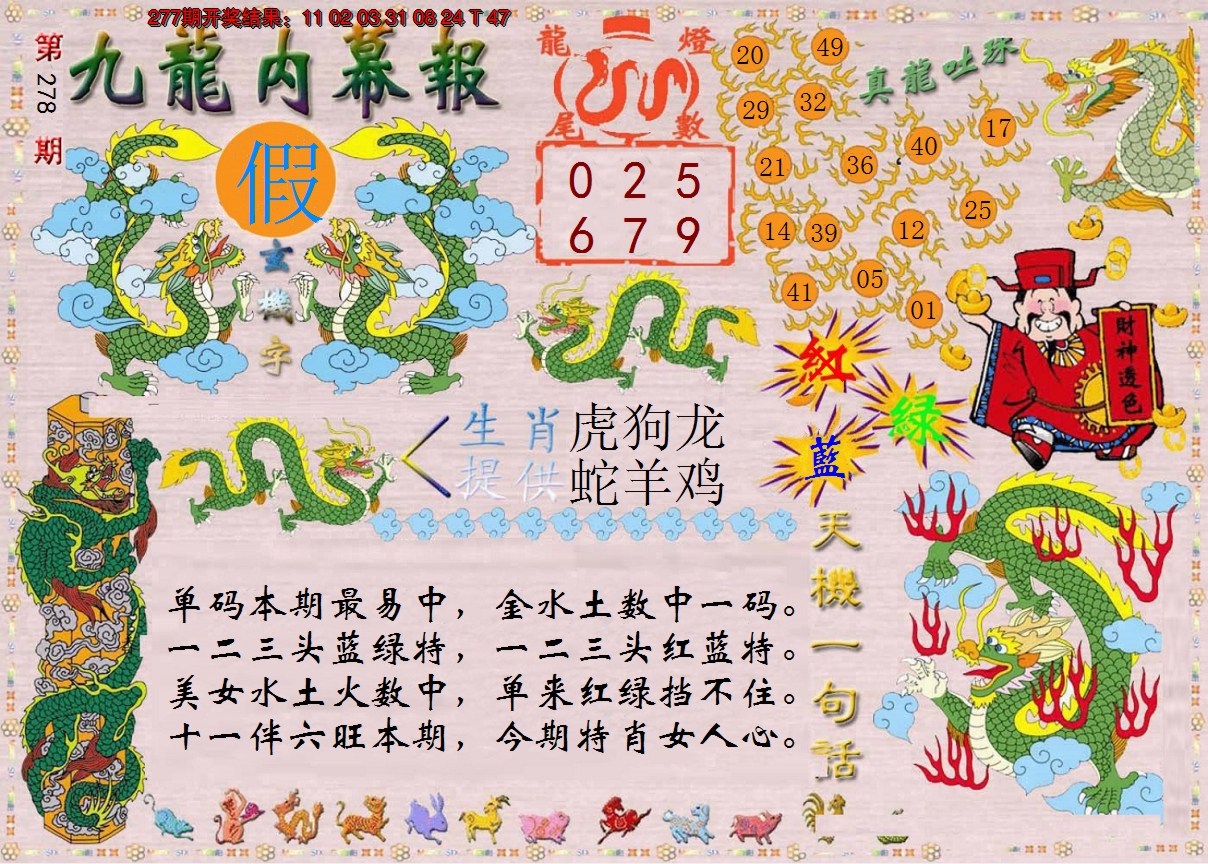 277期开奖结果：11 02 03 31 08 24 T 47
第278期
九龍内幕報
假
玄機字
龍燈
尾數
0 2 5
6 7 9
真龍吐珠
20 49
29 32
21 36 40 17
14 39 12 25
41 05 01
財神透色
紅
綠
藍
生肖提供
虎狗龙
蛇羊鸡
天機一句話
单码本期最易中，金水土数中一码。
一二三头蓝绿特，一二三头红蓝特。
美女水土火数中，单来红绿挡不住。
十一伴六旺本期，今期特肖女人心。